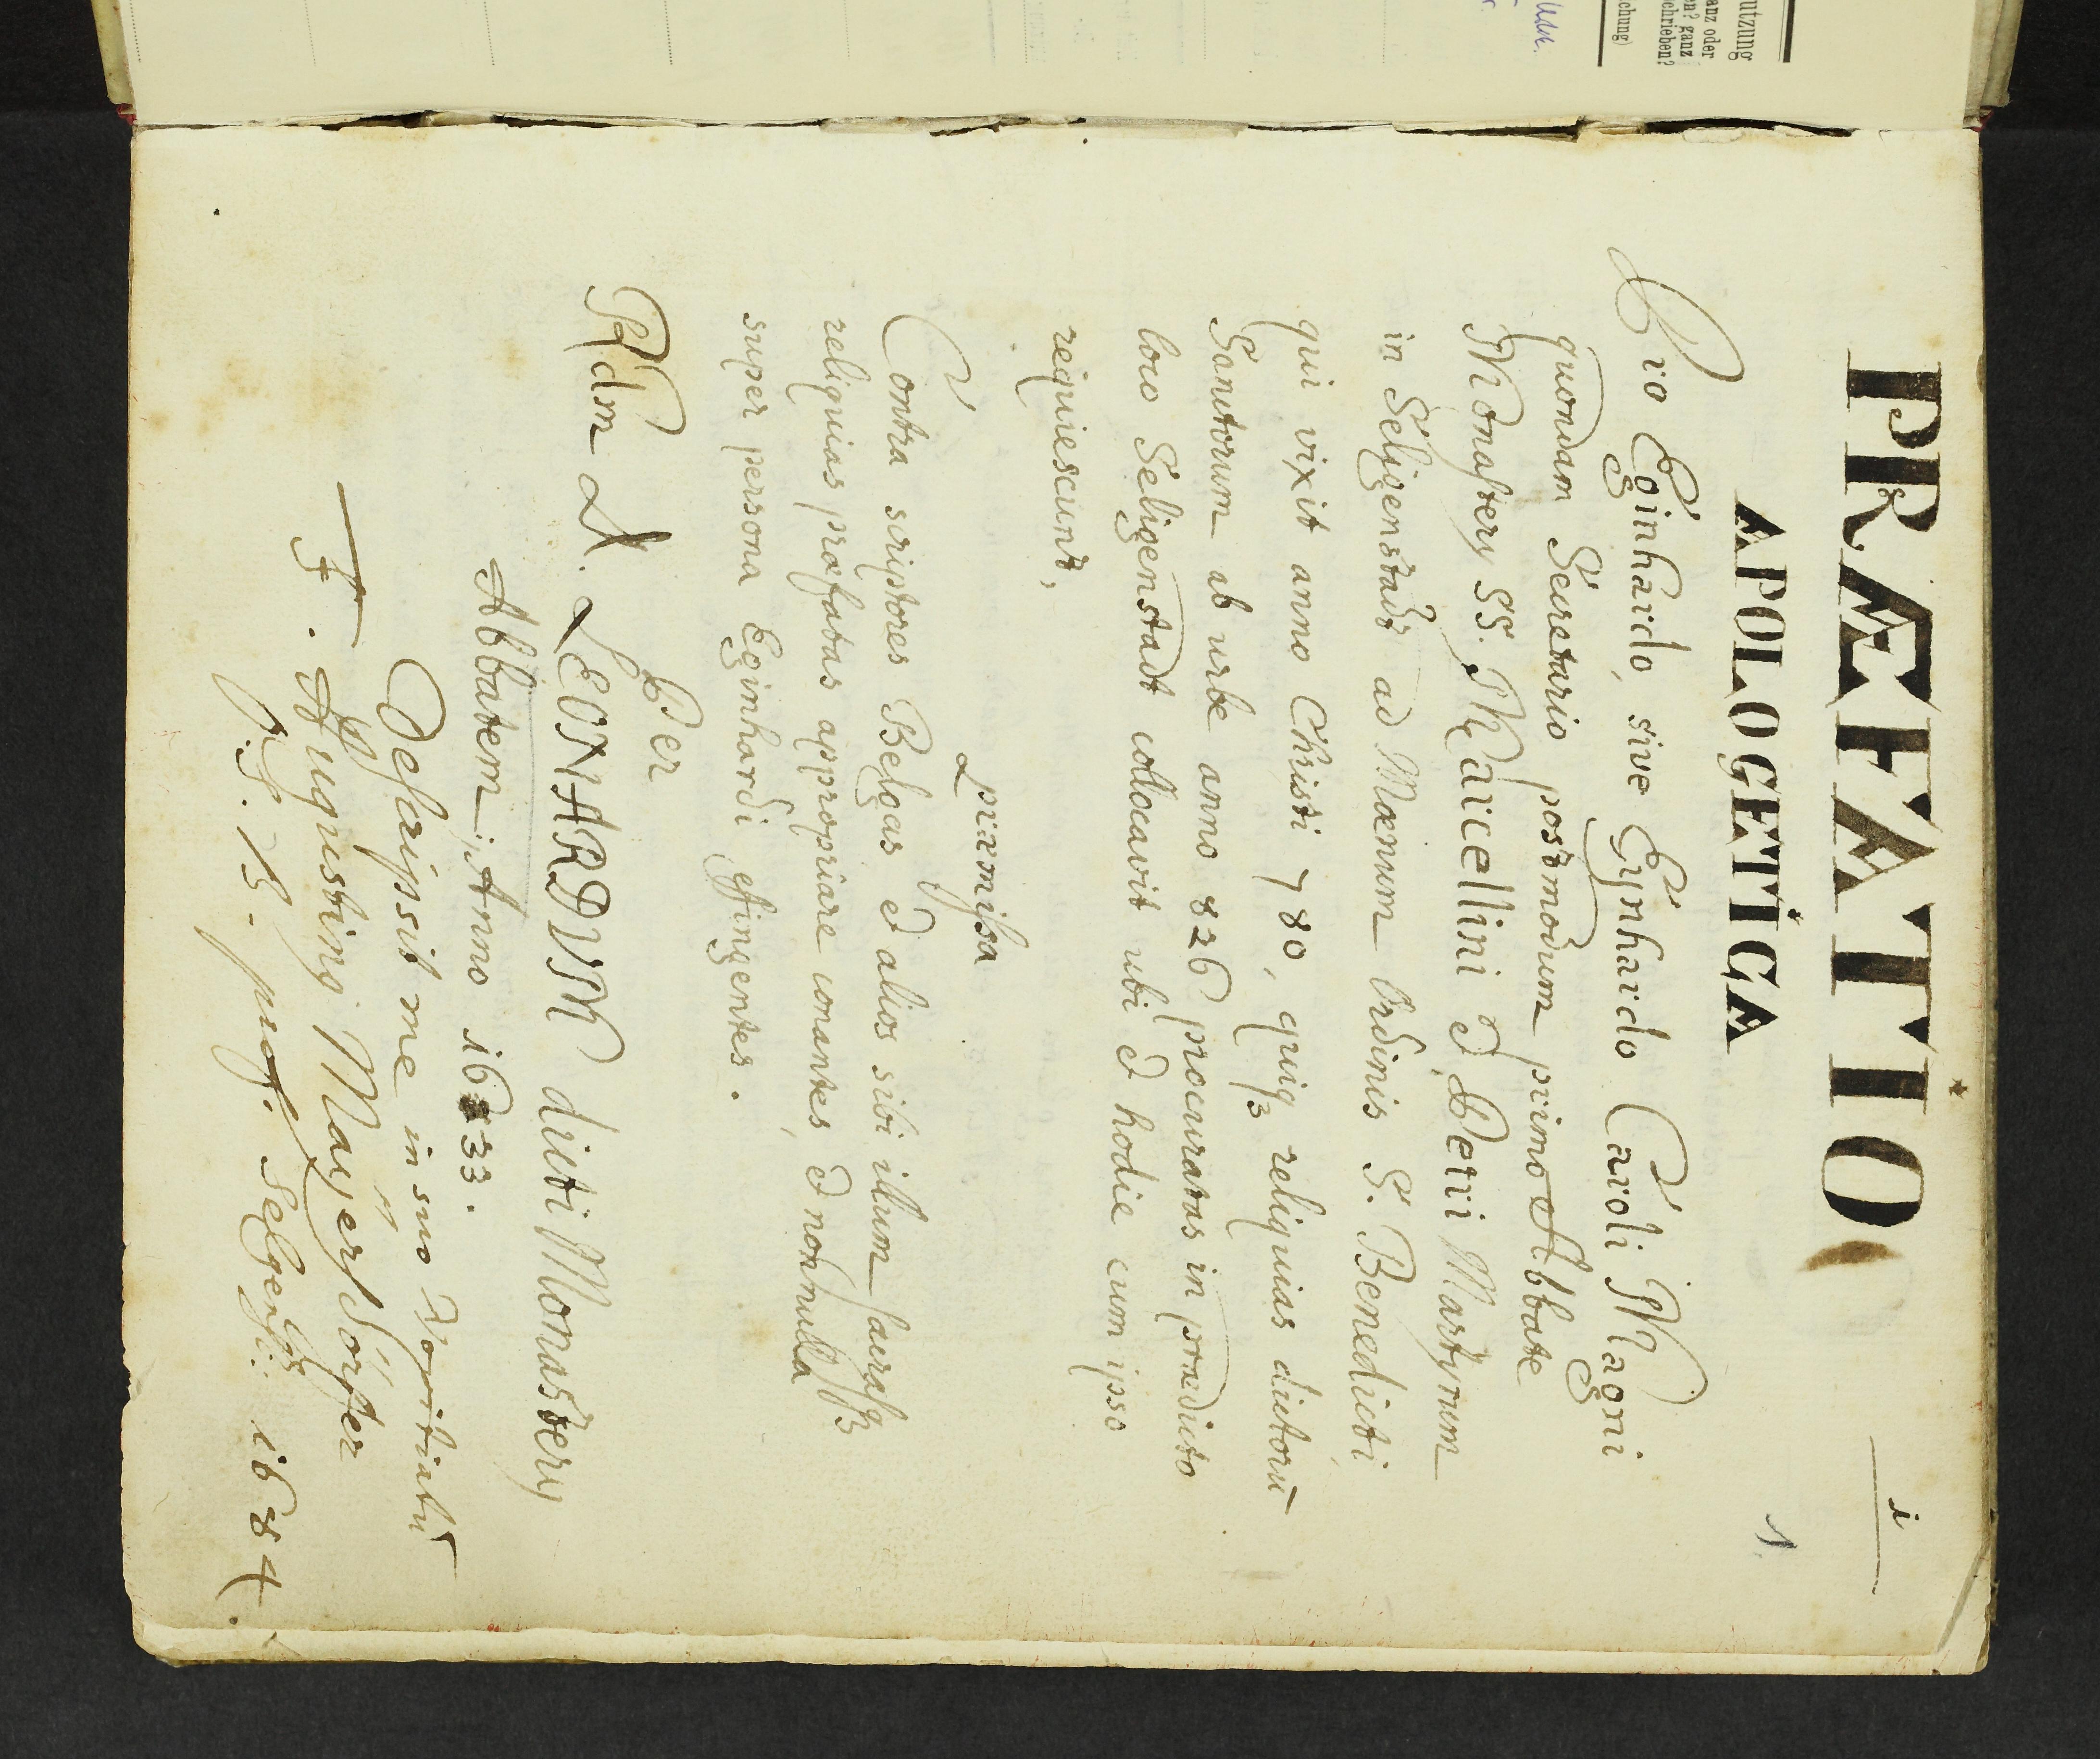 i
1
PRÆFATIO
APOLOGETICA
Pro Eginhardo, sive Eynhardo Caroli Magni
quondam Secretario postmodum primo Abbate
Monastery SS. Marcellini et Petri Martyrum
in Seligenstadt ad Mænum Ordinis S. Benedicti
qui vixit anno Christi 780, quiqȝ reliquias dictorū
Sanctorum ab urbe anno 826 procuratas in prædicto
loco Seligenstadt collocavit ubi et hodie cum ipso
requiescunt,
præmissa
Contra scriptores Belgas et alios sibi illum
reliquias præfatas appropriare conantes, et nonnulla
super persona Eginhardi effingentes.
Per
Rdm D. LEONARDVM dicti Monastery
Abbatem; Anno 1633.
Descripsit me in suo Novitiatu
F. Augustinꝯ
O. S. B. prof. Seligenss: 1684.
utzung
anz oder
en? ganz
chrieben?
chung)